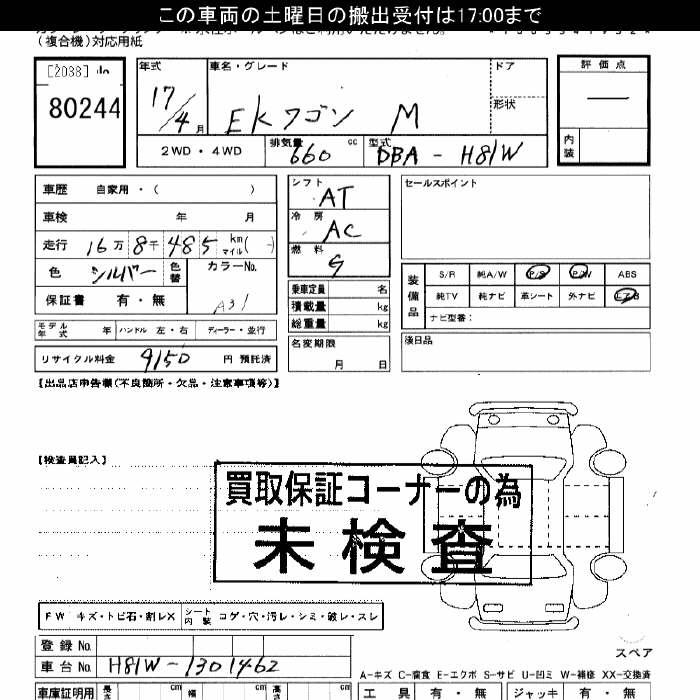 この車両の土曜日の搬出受付は17:00まで
(複合機)対応用紙
[2088]
80244
年式 17/4月
車名・グレード
EKワゴン M
ドア
形状
評価点
—
内装
2WD・4WD
排気量 660 cc
型式 DBA-H81W
車歴 自家用・( )
車検 年 月
走行 16万8千485 km マイル( )
色 シルバー 色替 カラーNo. A31
保証書 有・無
モデル年式 年 ハンドル 左・右 ディーラー・並行
リサイクル料金 9150 円 預託済
シフト AT
冷房 AC
燃料 G
乗車定員 名
積載量 kg
総重量 kg
名変期限
月 日
セールスポイント
装備品
S/R 純A/W P/S P/W ABS
純TV 純ナビ 革シート 外ナビ エアB
ナビ型番:
後日品
【出品店申告欄(不良箇所・欠品・注意事項等)】
【検査員記入】
買取保証コーナーの為
未検査
FW キズ・トビ石・割レX シート内装 コゲ・穴・汚レ・シミ・破レ・スレ
登録No.
車台No. H81W-1301462
スペア
A-キズ C-腐食 E-エクボ S-サビ U-凹ミ W-補修 XX-交換済
車庫証明用 長さ cm 幅 cm 高さ cm
工具 有・無 ジャッキ 有・無